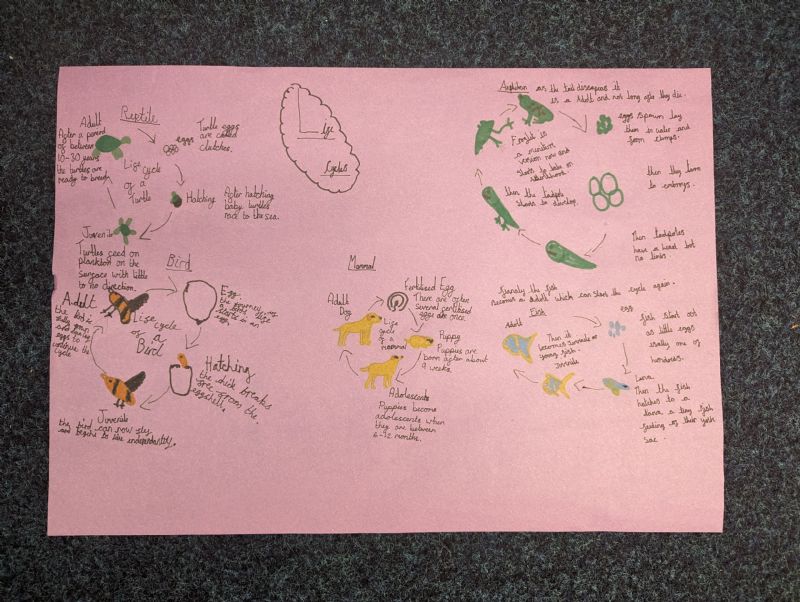 Reptile
Adult
After a period
of between
10-30 years
the turtles are
ready to breed.
Life cycle
of a
Turtle
eggs
Turtle eggs
are called
clutches.
Hatching
After hatching
baby turtles
race to the sea.
Juvenile
Turtles feed on
plankton on the
surface with little
to no direction.
Life
Cycles
Amphibian
as the tail dissapears it
is a Adult and not long after they die.
eggs spawn lay
them in water and
form clumps.
then they form
to embryos.
Then tadpoles
have a head but
no limbs.
then the tadpole
starts to develop.
Froglet is
a miniture
version now and
starts to take on
Bird
Life cycle
of a
Bird
Egg:
the journey of
a birds life
starts in an
egg.
Hatching
the chick breaks
free from the
eggshell,
Juvenile
the bird can now fly
and begins to live independantly.
Adult
the bird is
fully grown
and
eggs to
continue the
cycle
Mammal
Fertilised Egg
There are often
several fertilised
eggs at once.
Puppy
Puppies are
born after about
9 weeks.
Adolescents
Puppies become
adolescents when
they are between
6-12 months.
Adult
Dog
Life
cycle
of a
mammal
Finally the fish
becomes a Adult which can start the cycle again.
Fish
egg
fish start out
as little eggs
ususally one of
hundreds.
Larva.
Then the fish
hatches to a
larva a tiny fish
feeding of their yolk
sac.
Then it
becomes Juvinile or
young fish.
Juvinile
Adult